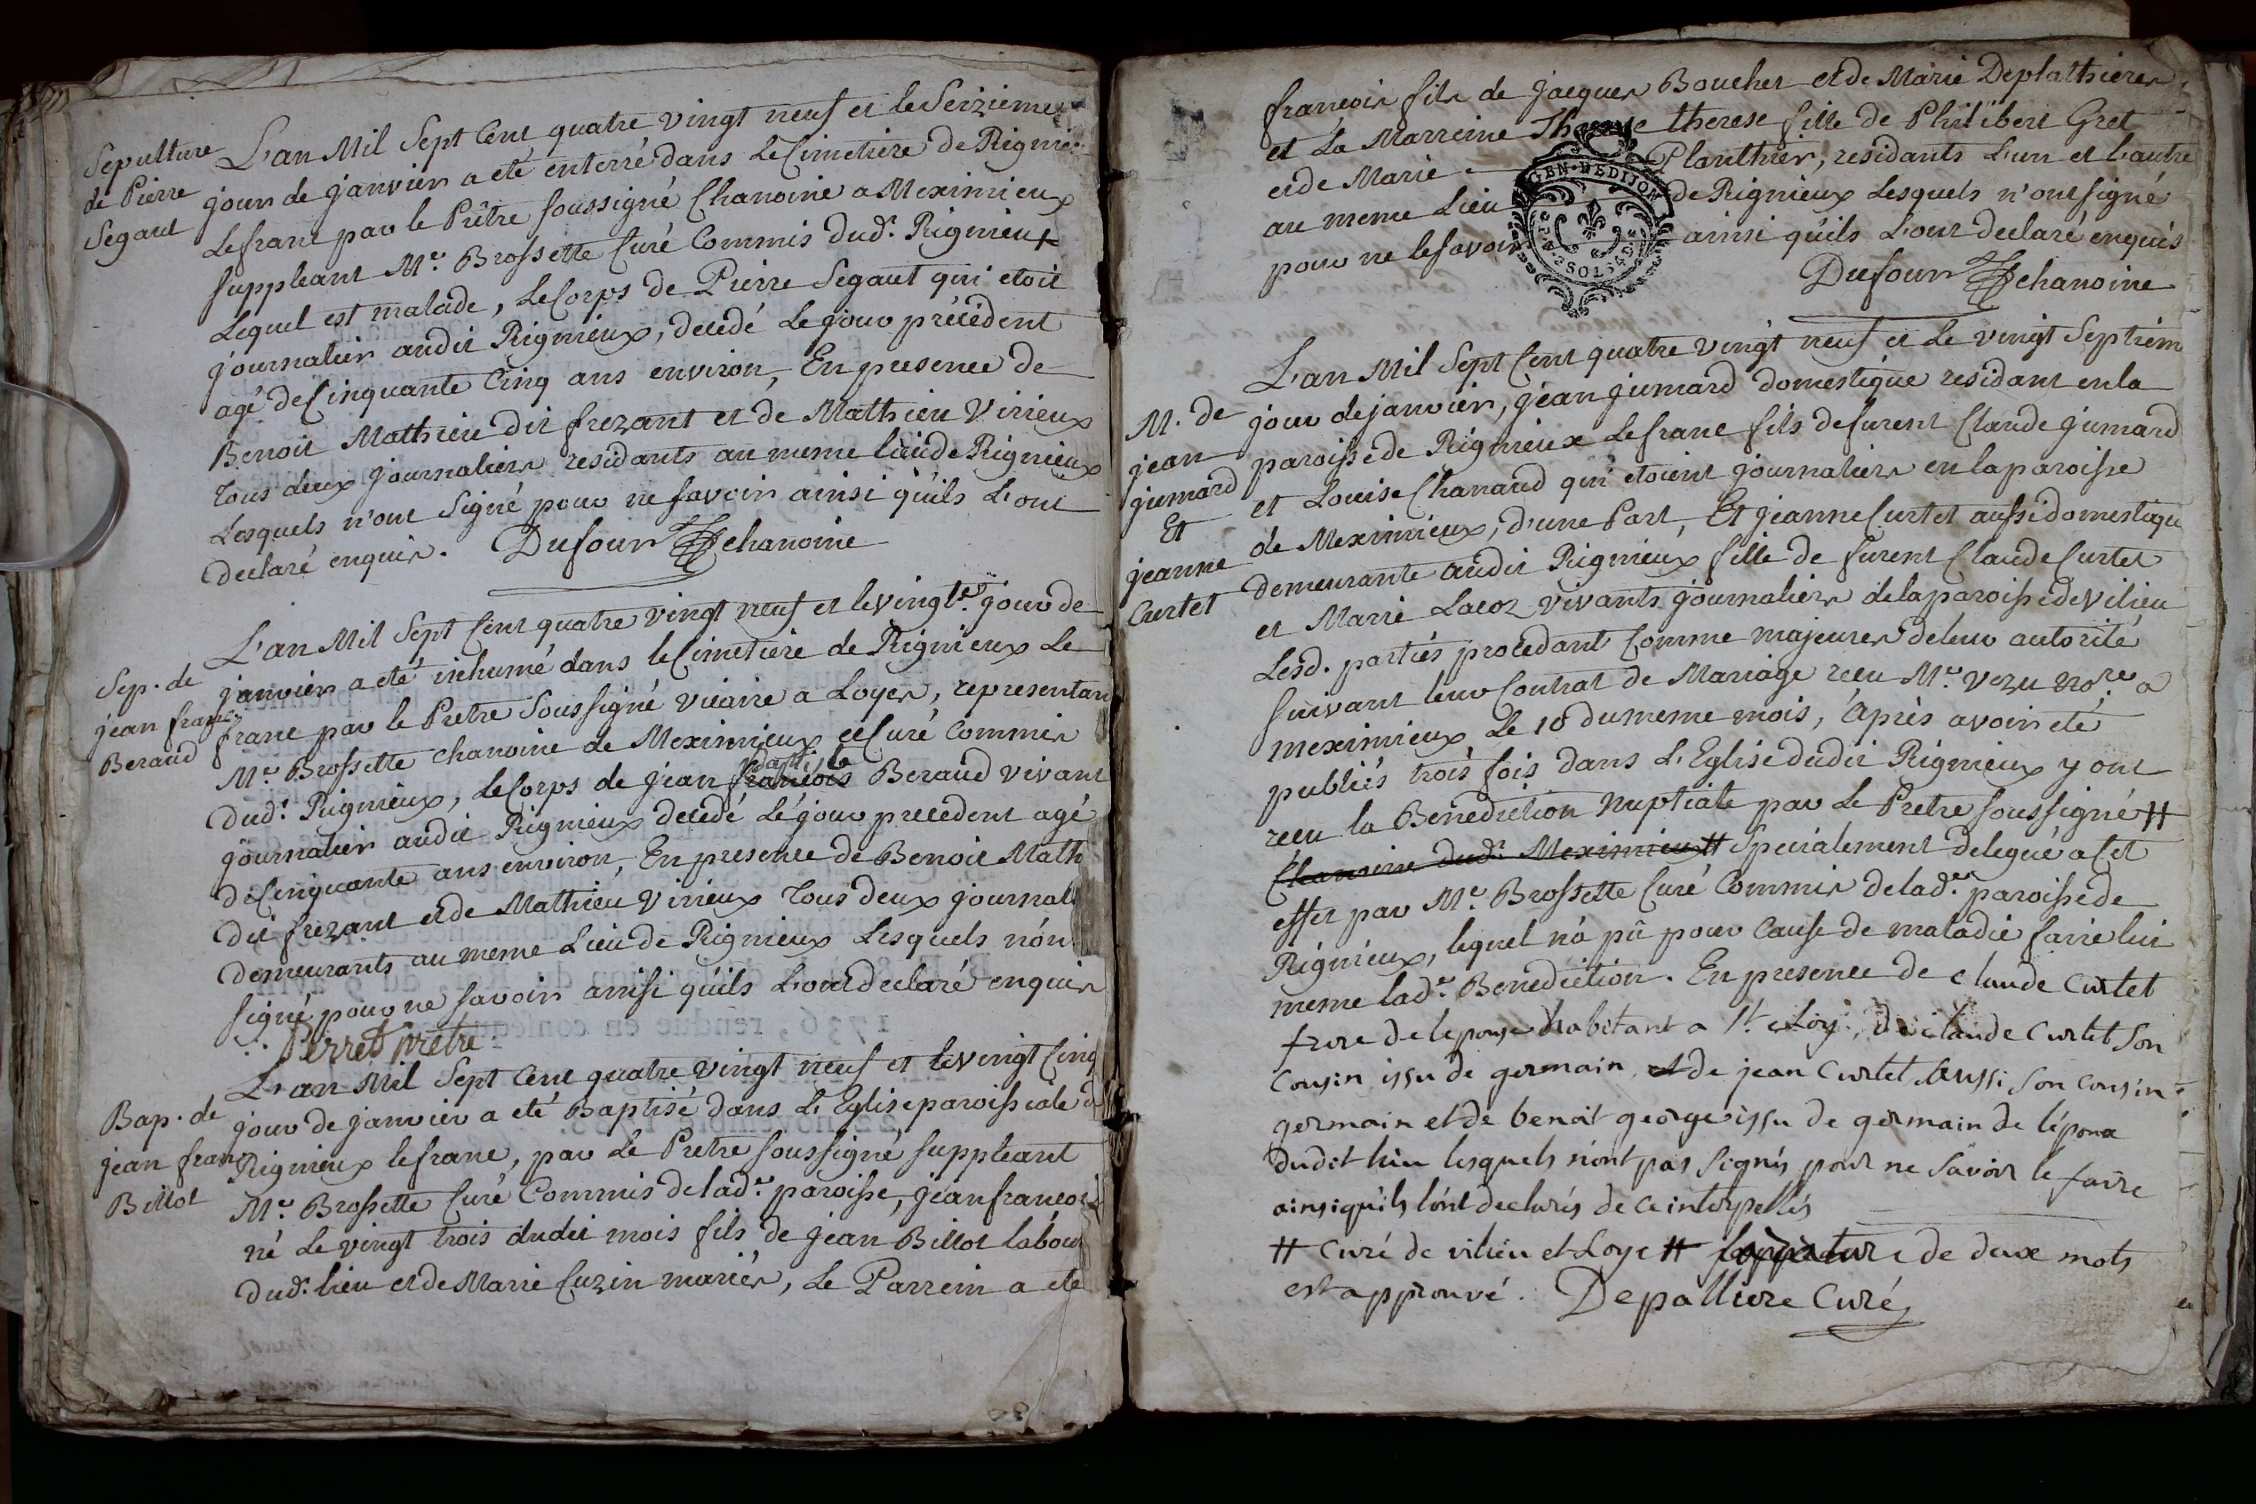 Sepulture
de Pierre
Segaut
L'an Mil Sept Cent quatre vingt neuf et le Seizieme
jour de janvier a eté enterré dans Le Cimetiere de Rignieu
Lefranc par le Prêtre soussigné Chanoine a Meximieux
suppleant Mre. Brossette Curé Commis dudt. Rignieux
Lequel est malade, Le Corps de Pierre Segaut qui etoit
journalier audit Rignieux, decedé Le jour précédent
agé de Cinquante Cinq ans environ, En presence de
Benoit Mathieu dit frezant et de Mathieu Virieux
Tous deux journaliers residants au meme lieu de Rignieux
Lesquels n'ont Signé pour ne savoir ainsi qu'ils L'ont
declaré enquis. Dufour chanoine
Sep. de
jean franç
Beraud
L'an Mil Sept Cent quatre vingt neuf et le vingte. jour de
janvier a eté inhumé dans le Cimetiere de Rignieux Le
franc par le Pretre Soussigné vicaire a Loyes, representan
Mre. Brossette chanoine de Meximieux et Curé Commis
dudt. Rignieux, Le Corps de jean françois Beraud vivant
journalier audit Rignieux decedé Le jour precedent agé
de Cinquante ans environ, En presence de Benoit Math
dit frezant et de Mathieu Virieux Tous deux journal
demeurants au meme Lieu de Rignieux Lesquels n'on
signé pour ne savoir ainsi qu'ils L'ont declaré enquis
Perret prêtre
Bap. de
jean franç
Billot
L'an Mil Sept Cent quatre vingt neuf et le vingt Cinq
jour de janvier a eté Baptisé dans L'Eglise paroissiale d
Rignieux lefranc, par Le Pretre soussigné suppleant
Mre. Brossette Curé Commis de lade. paroisse, jean francois
né Le vingt trois dudit mois fils de jean Billot labour
dudt. lieu et de Marie Cuzin mariés, Le Parrein a eté
francois fils de jacques Boucher et de Marie Deplathieres
et La Marreine Therese therese fille de Philibert Gret
et de Marie Planthier, residants L'un et L'autre
au meme Lieu de Rignieux Lesquels n'ont signé
pour ne le savoir ainsi qu'ils L'ont declaré enquis
GEN. DE DIJON
Dufour chanoine
M. de
jean
jumard
Et
jeanne
Curtet
L'an Mil Sept Cent quatre vingt neuf et Le vingt Septiem
jour de janvier, jean jumard domestique residant en la
paroisse de Rignieux Lefranc fils de furent Claude jumard
et Louise Chanard qui etoient journaliers en la paroisse
de Meximieux, d'une Part, Et jeanne Curtet aussi domestique
demeurante audit Rignieux fille de furent Claude Curtet
et Marie Lacoz vivants journaliers de la paroisse de Vilieu
Lesd. parties procedant Comme majeures de leur autorité
suivant leur Contrat de Mariage recu Mre. Vezu nore. a
meximieux Le 18 du meme mois, Après avoir eté
publiés trois fois dans L'Eglise dudit Rignieux y ont
recu la Benediction nuptiale par Le Pretre soussigné #
Chanoine dudt. Meximieux # Specialement delegué a Cet
effet par Mre. Brossette Curé Commis de lade. paroisse de
Rignieux, lequel n'a pû pour Cause de maladie faire lui
meme lade. Benediction. En presence de Claude Curtet
frere de lepouse habitant a St eloy, de claude Curtet son
cousin issu de germain, et de jean Curtet aussi son cousin
germain et de benoit george issu de germain de l'époux
dudit lieu lesquels n'ont pas signés pour ne savoir le faire
ainsi qu'ils l'ont declarés de ce interpellés
# curé de vilieu et Loye # de deux mots
est approuvé. Depalliere Curé